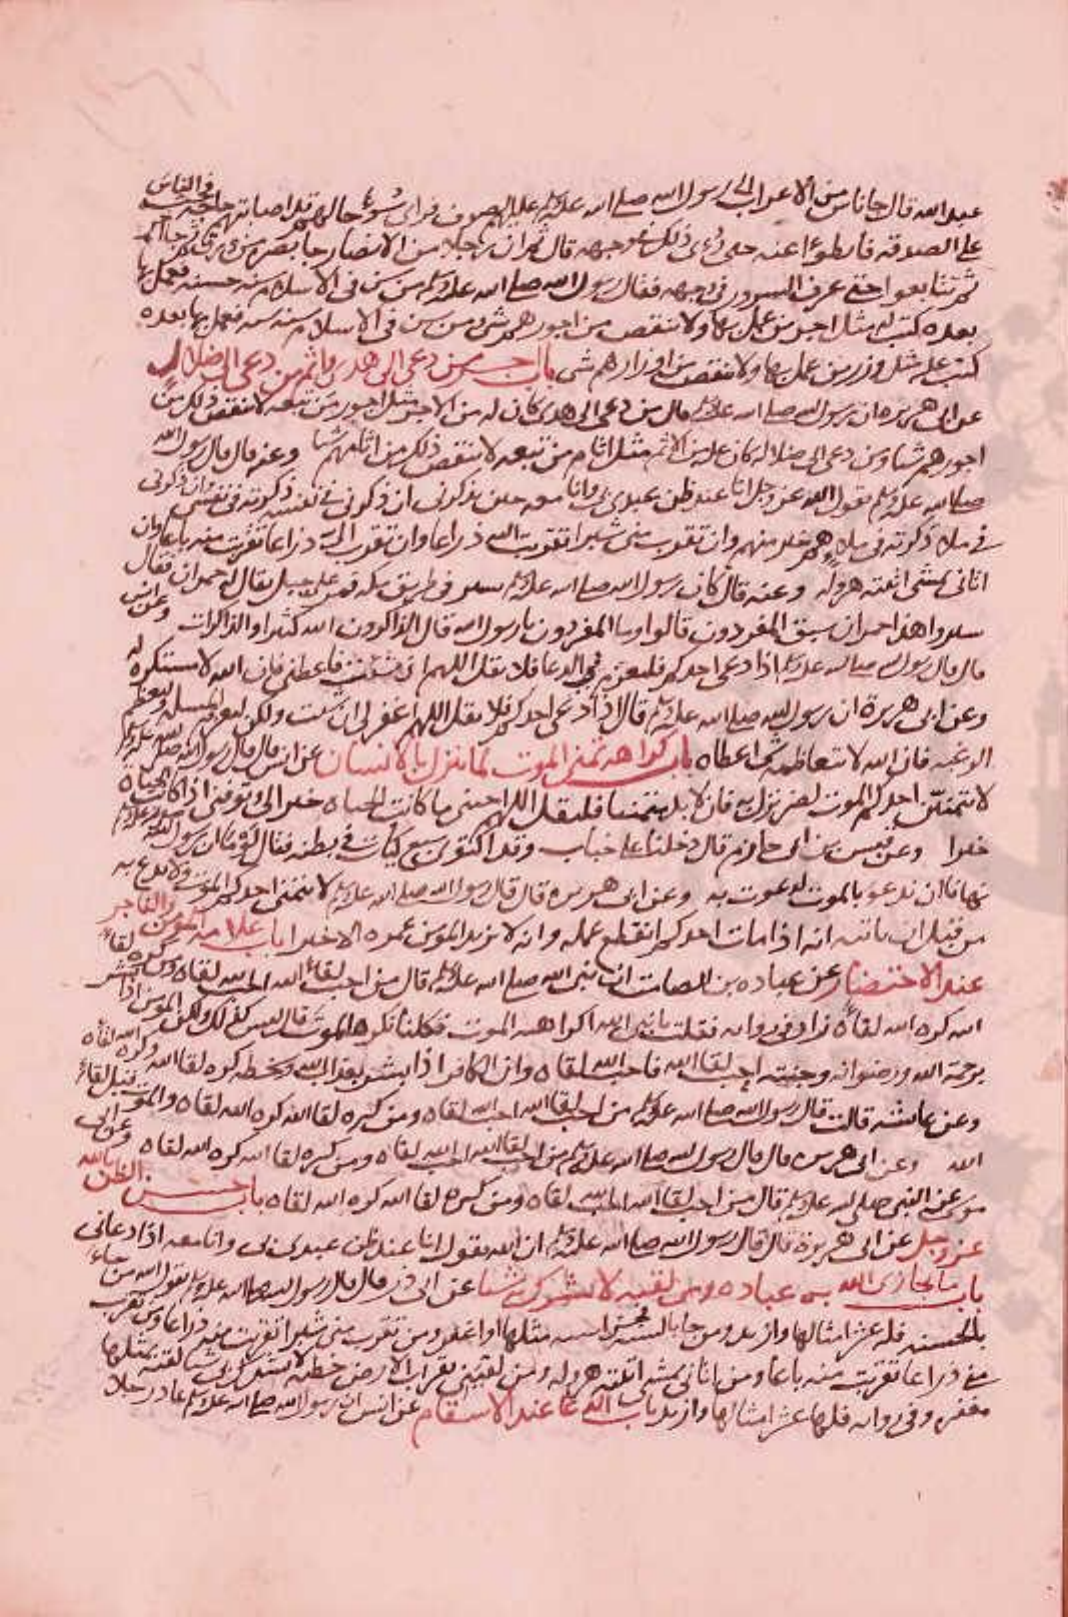 عبد الله قال جا ناس من الاعراب الى رسول الله صلى الله عليه وسلم عليهم الصوف فراى سوء حالهم قد اصابتهم حاجة فحث الناس
على الصدقة فابطوا عنه حتى رؤى ذلك فى وجهه قال ثم ان رجلا من الانصار جا بصرة من ورق ثم جا اخر
ثم تتابعوا حتى عرف السرور فى وجهه فقال رسول الله صلى الله عليه وسلم من سن فى الاسلام سنة حسنة فعمل بها
بعده كتب له مثل اجر من عمل بها ولا ينقص من اجورهم شى ومن سن فى الاسلام سنة سية فعمل بها بعده
كتب عليه مثل وزر من عمل بها ولا ينقص من اوزارهم شى باب اجر من دعى الى هدى واثم من دعى الى ضلال
عن ابى هريرة ان رسول الله صلى الله عليه وسلم قال من دعى الى هدى كان له من الاجر مثل اجور من تبعه لا ينقص ذلك من
اجورهم شيا ومن دعى الى ضلالة كان عليه من الاثم مثل اثام من تبعه لا ينقص ذلك من اثامهم شيا وعنه قال قال رسول الله
صلى الله عليه وسلم يقول الله عز وجل انا عند ظن عبدى بى وانا معه حين يذكرنى ان ذكرنى فى نفسه ذكرته فى نفسى وان ذكرنى
فى ملا ذكرته فى ملا هم خير منهم وان تقرب منى شبرا تقربت اليه ذراعا وان تقرب الى ذراعا تقربت منه باعا وان
اتانى يمشى اتيته هرولة وعنه قال كان رسول الله صلى الله عليه وسلم يسير فى طريق مكة فمر على جبل يقال له جمدان فقال
سيروا هذا جمدان سبق المفردون قالوا وما المفردون يا رسول الله قال الذاكرون الله كثيرا والذاكرات وعن انس
قال قال رسول الله صلى الله عليه وسلم اذا دعى احدكم فليعزم فى الدعا فلا يقل اللهم ان شئت فاعطنى فان الله لا مستكره له
وعن ابى هريرة ان رسول الله صلى الله عليه وسلم قال اذا دعى احدكم فلا يقل اللهم اغفر لى ان شئت ولكن ليعزم المسلة وليعظم
الرغبة فان الله لا يتعاظمه شى اعطاه باب كراهة تمنى الموت لما نزل بالانسان عن انس قال قال رسول الله صلى الله عليه وسلم
لا يتمنين احدكم الموت لضر نزل به فان لا بد متمنيا فليقل اللهم احينى ما كانت الحياة خيرا لى وتوفنى اذا كانت الوفاة
خيرا وعن قيس بن ابى حازم قال دخلنا على خباب وقد اكتوى سبع كيات فى بطنه فقال لو ما ان رسول الله صلى الله عليه وسلم
نهانا ان ندعو بالموت لدعوت به وعن ابى هريرة قال قال رسول الله صلى الله عليه وسلم لا يتمنى احدكم الموت ولا يدع به
من قبل ان ياتيه انه اذا مات احدكم انقطع عمله وانه لا يزيد المومن عمره الا خيرا باب علامة المومن والفاجر
عند الاحتضار وعن عبادة بن الصامت ان نبى الله صلى الله عليه وسلم قال من احب لقاء الله احب الله لقاه ومن كره لقاء
الله كره الله لقاه زاد فى رواية فقلت يا نبى الله اكراهية الموت فكلنا نكره الموت قال ليس كذلك ولكن المومن اذا بشر
برحمة الله ورضوانه وجنته احب لقا الله فاحب الله لقاه وان الكافر اذا بشر بعذاب الله وسخطه كره لقا الله وكره الله لقاه
وعن عائشة قالت قال رسول الله صلى الله عليه وسلم من احب لقا الله احب الله لقاه ومن كره لقا الله كره الله لقاه والموت قبل لقاء
الله وعن ابى هريرة قال قال رسول الله صلى الله عليه وسلم من احب لقا الله احب الله لقاه ومن كره لقا الله كره الله لقاه وعن ابى
موسى عن النبى صلى الله عليه وسلم قال من احب لقا الله احب الله لقاه ومن كره لقا الله كره الله لقاه باب حسن الظن بالله
عز وجل عن ابى هريرة قال قال رسول الله صلى الله عليه وسلم ان الله يقول انا عند ظن عبدى بى وانا معه اذا دعانى
باب ما يجازى الله به عباده ومن لقيه لا يشرك شيا عن ابى ذر قال قال رسول الله صلى الله عليه وسلم يقول الله من جاء
بالحسنة فله عشر امثالها وازيد ومن جا بالسية فجزا سية مثلها او اغفر ومن تقرب منى شبرا تقربت منه ذراعا ومن تقرب
منى ذراعا تقربت منه باعا ومن اتانى يمشى اتيته هرولة ومن لقينى بقراب الارض خطية لا يشرك بى شيا لقيته بمثلها
مغفرة وفى رواية فلها عشر امثالها وازيد باب الدعا عند الاسقام عن انس ان رسول الله صلى الله عليه وسلم عاد رجلا